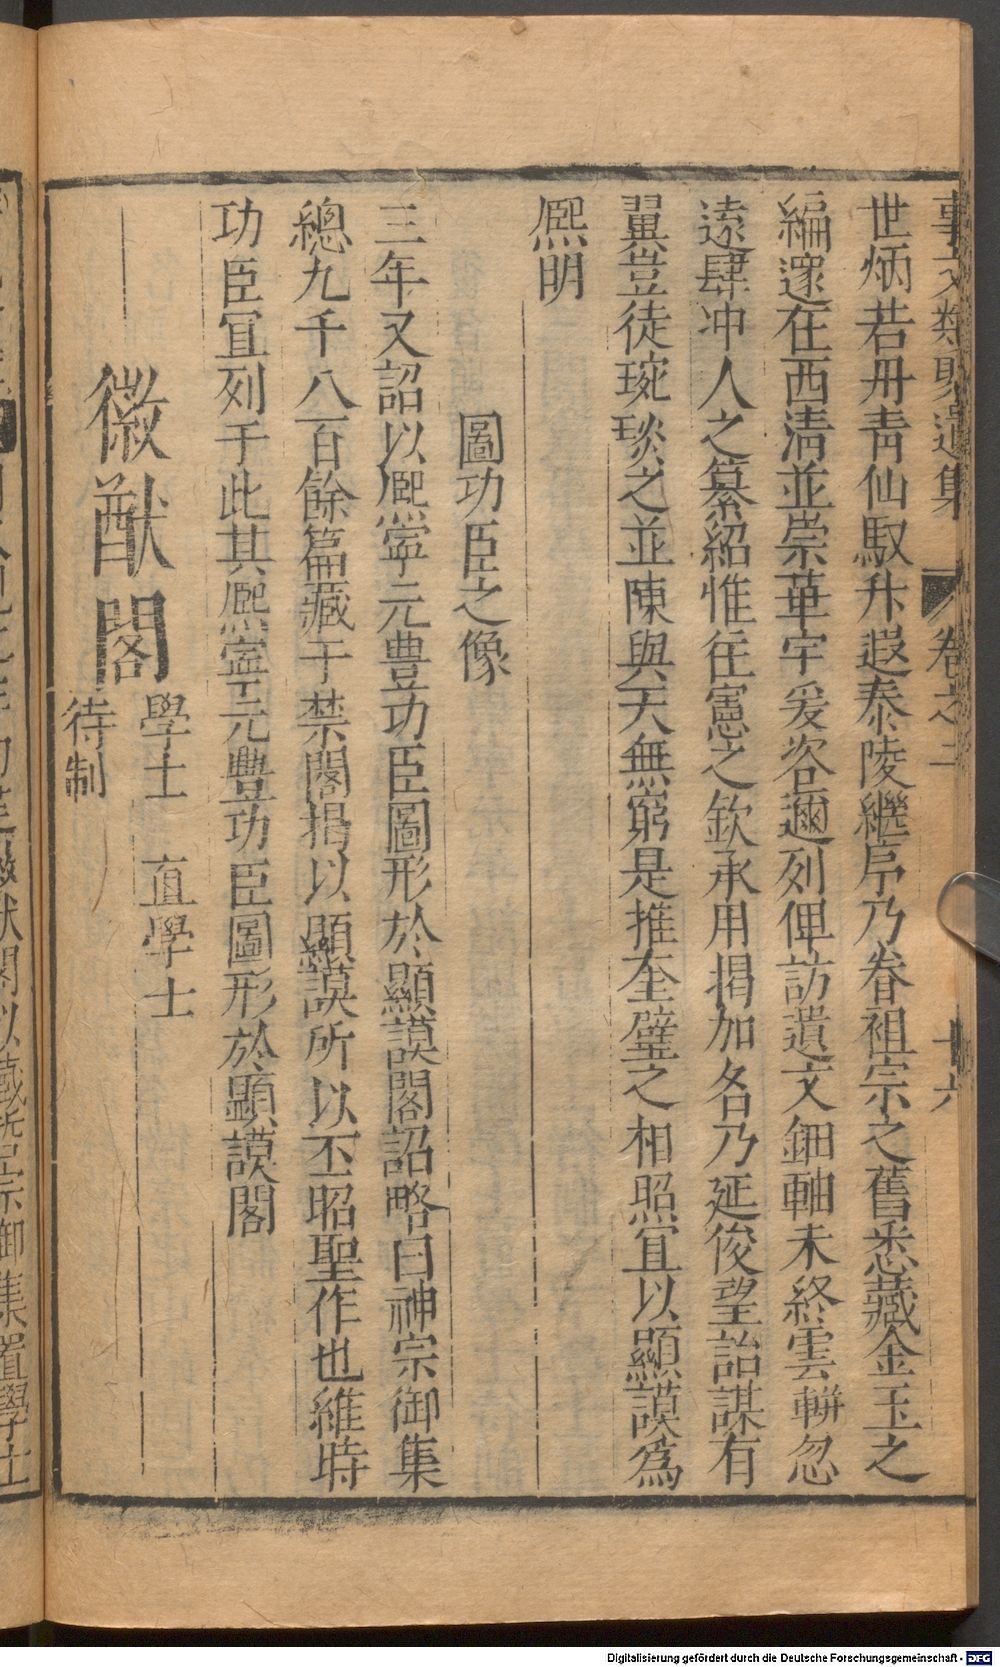 事文類聚遺集 卷之二 十六
世炳若丹青仙馭升遐泰陵繼序乃眷祖宗之舊悉藏金玉之
編邃在西清並崇華宇爰咨邇列俾訪遺文鈿軸未終雲軿忽
遠肆冲人之纂紹惟往憲之欽承用揭加各乃延俊望詒謀有
翼豈徒琬琰之並陳與天無窮是推奎璧之相照宜以顯謨為
熈明
圖功臣之像
三年又詔以熈寧元豊功臣圖形於顯謨閣詔略曰神宗御集
總九千八百餘篇藏于禁閣揭以顯謨所以丕昭聖作也維時
功臣宜列于此其熈寧元豊功臣圖形於顯謨閣
徽猷閣 學士 直學士
待制
徽猷閣以藏哲宗御集置學士
Digitalisierung gefördert durch die Deutsche Forschungsgemeinschaft - DFG